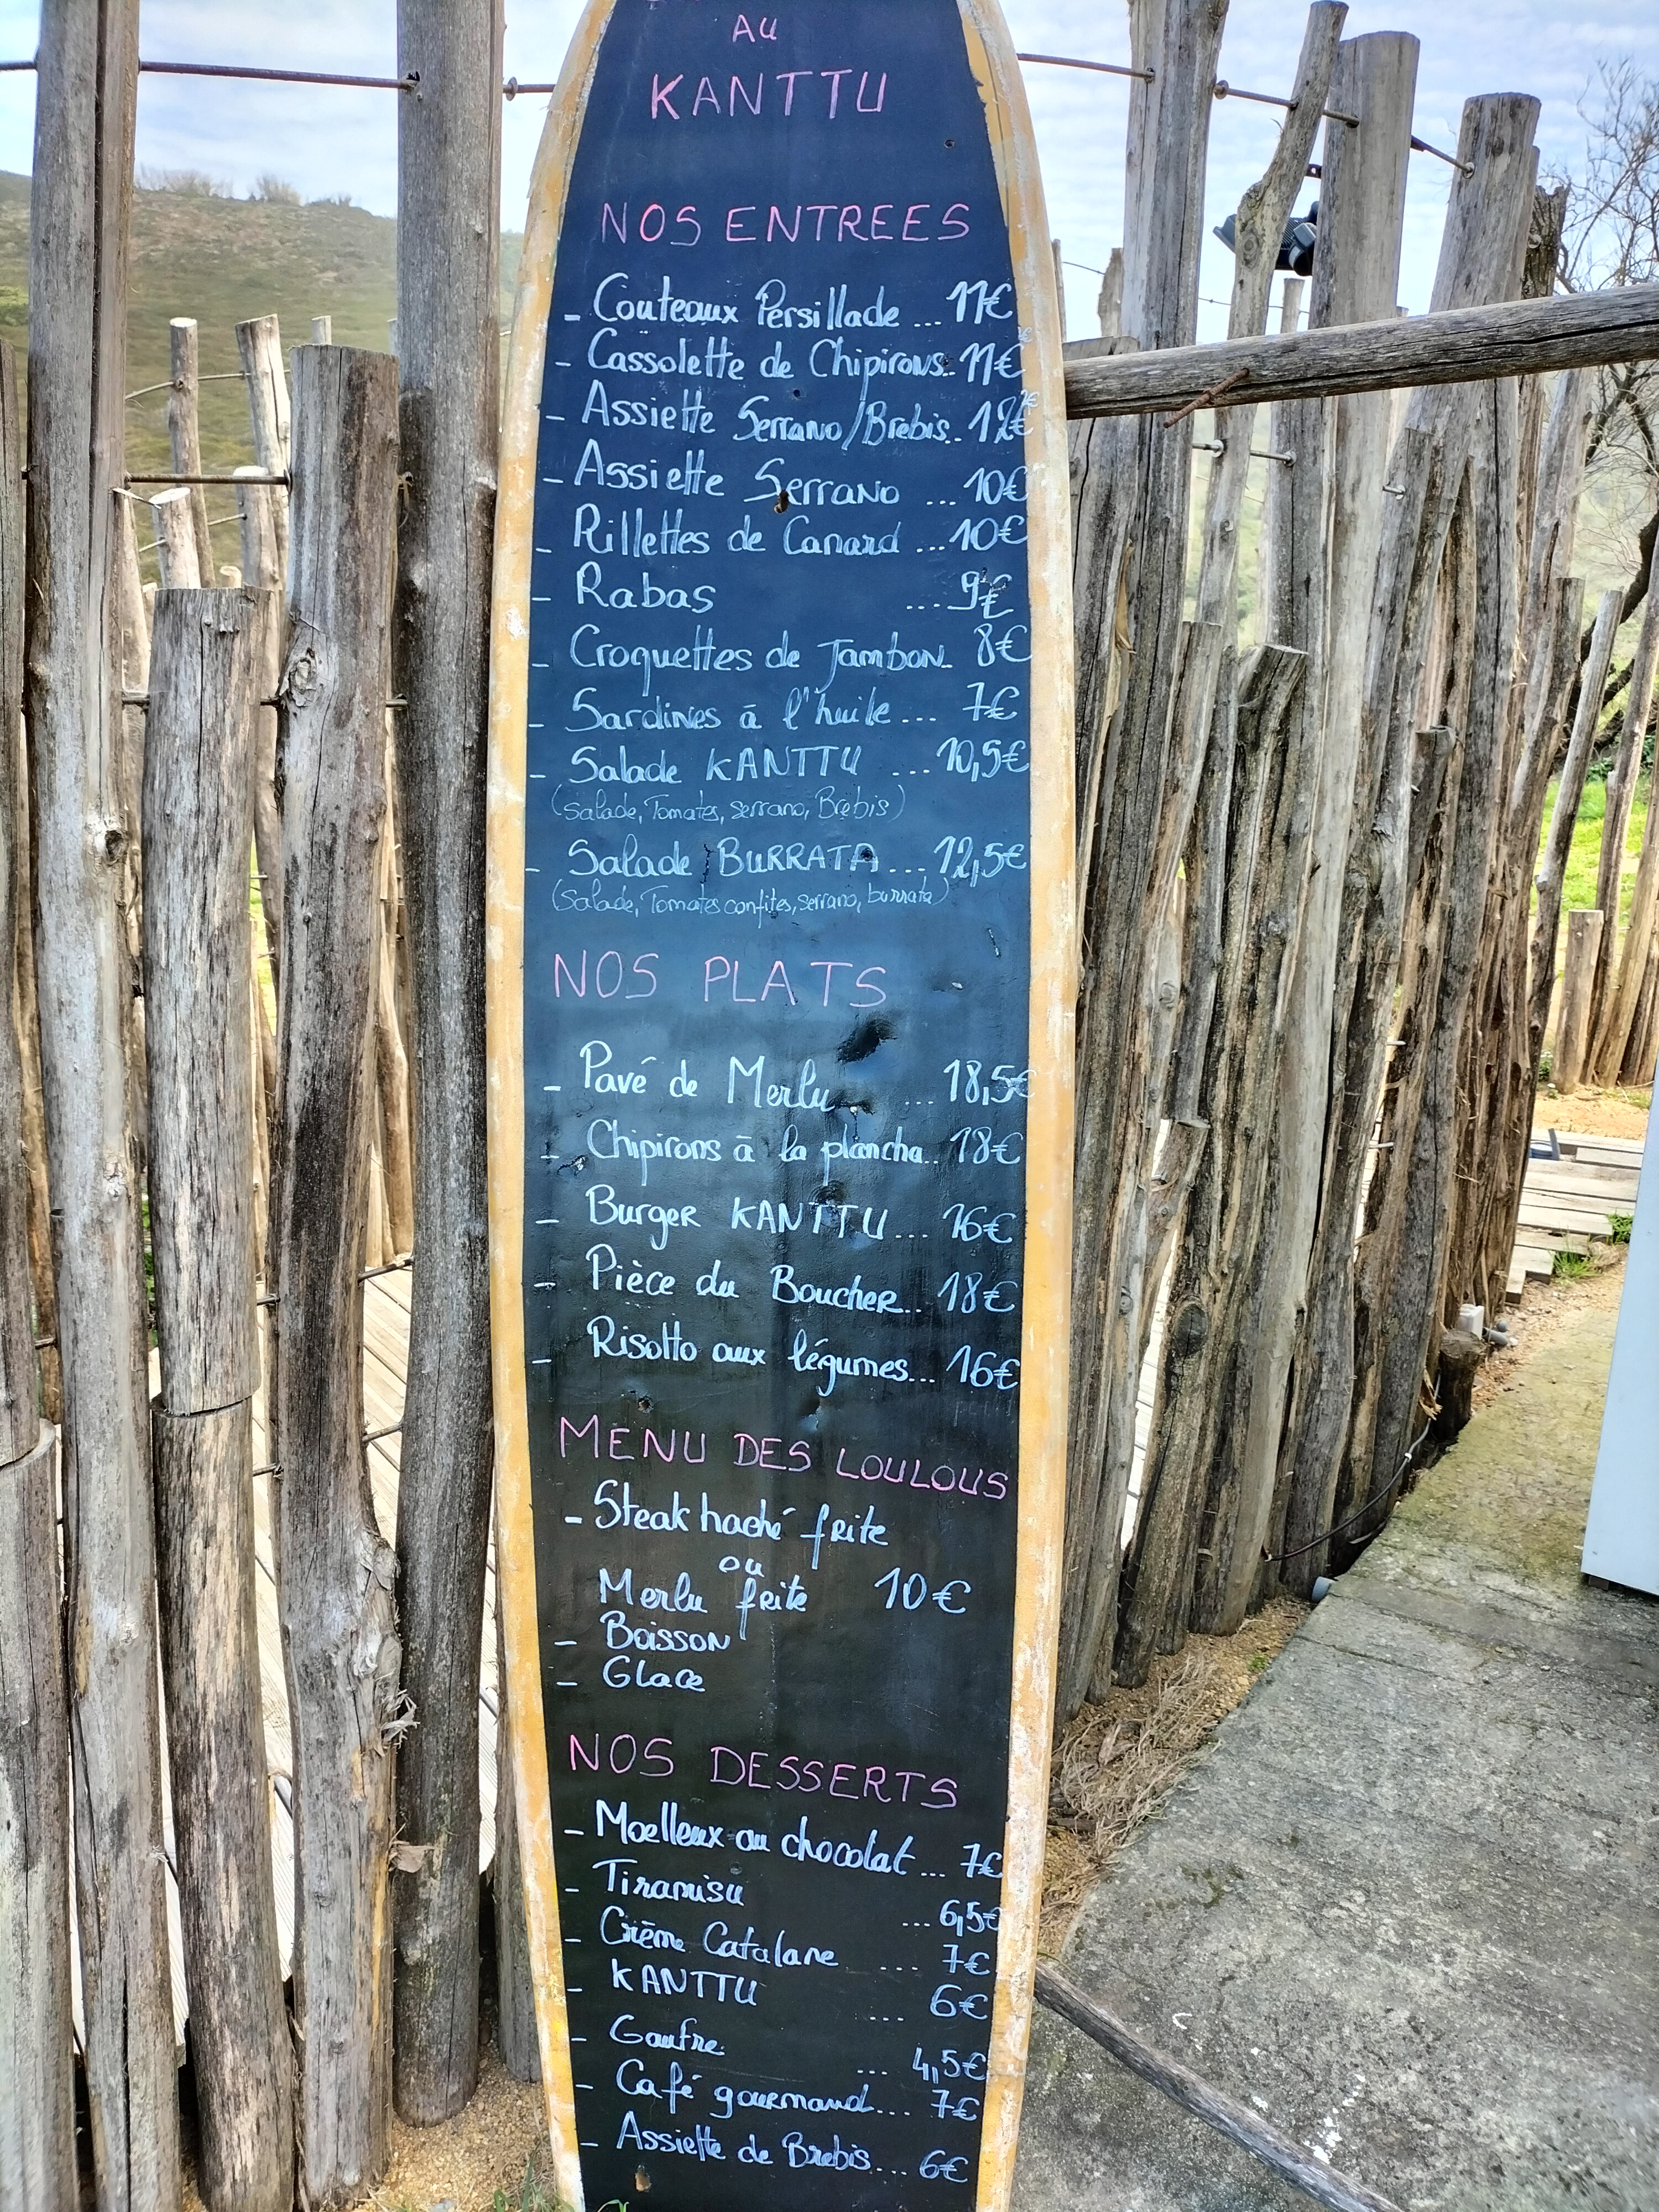 AU
KANTTU
NOS ENTREES
- Couteaux Persillade ... 11€
- Cassolette de Chipirons.. 11€
- Assiette Serrano/Brebis.. 12€
- Assiette Serrano ... 10€
- Rillettes de Canard ... 10€
- Rabas ... 9€
- Croquettes de Jambon.. 8€
- Sardines à l'huile ... 7€
- Salade KANTTU ... 10,5€
(Salade, Tomates, serrano, Brebis)
- Salade BURRATA ... 12,5€
(Salade, Tomates confites, serrano, burrata)
NOS PLATS
- Pavé de Merlu ... 18,5€
- Chipirons à la plancha.. 18€
- Burger KANTTU ... 16€
- Pièce du Boucher.. 18€
- Risotto aux légumes... 16€
MENU DES LOULOUS
- Steak haché frite
ou
Merlu frite 10€
- Boisson
- Glace
NOS DESSERTS
- Moelleux au chocolat ... 7€
- Tiramisu ... 6,5€
- Crème Catalane .... 7€
- KANTTU ... 6€
- Gaufre ... 4,5€
- Café gourmand... 7€
- Assiette de Brebis... 6€